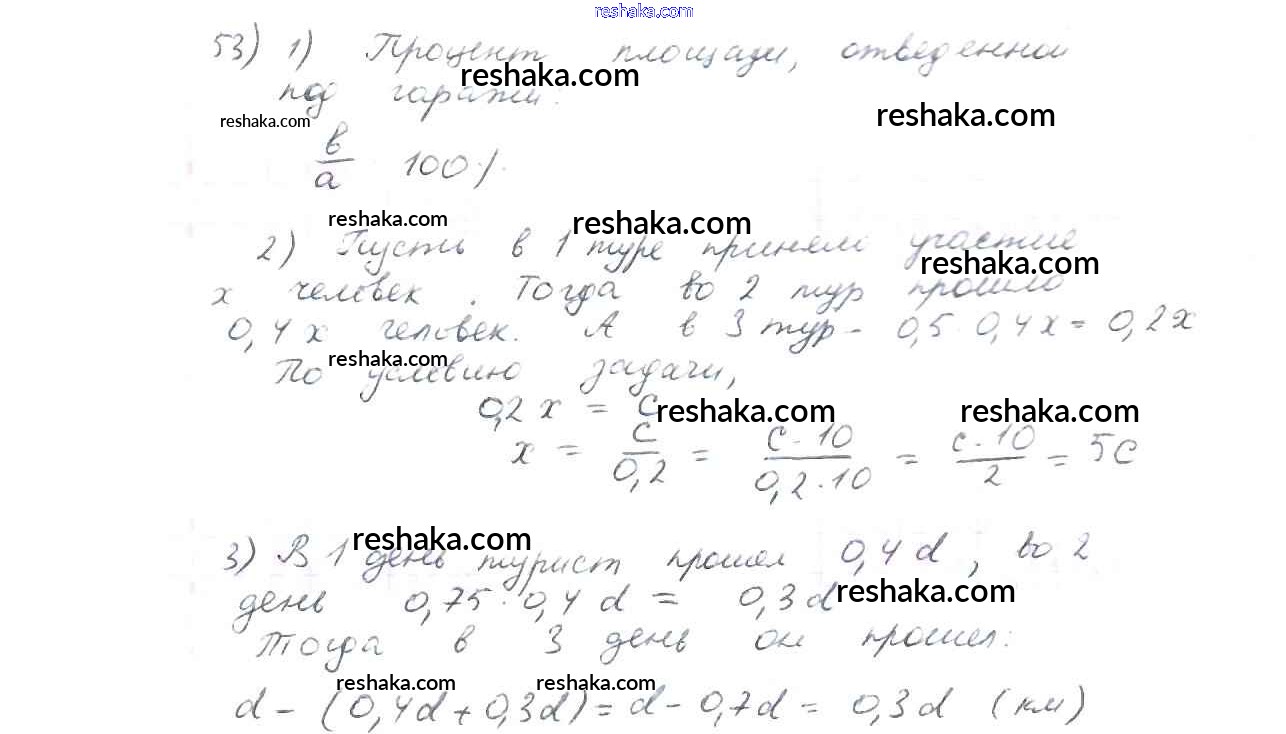 reshaka.com
53) 1) Процент площади, отведенной
reshaka.com
под гаражи:
reshaka.com reshaka.com
в/а 100%
reshaka.com reshaka.com
2) Пусть в 1 туре приняли участие
reshaka.com
x человек. Тогда во 2 тур прошло
0,4x человек. А в 3 тур - 0,5·0,4x = 0,2x
reshaka.com
По условию задачи,
0,2x = c
reshaka.com reshaka.com
x = c/0,2 = c·10/0,2·10 = c·10/2 = 5c
reshaka.com
3) В 1 день турист прошел 0,4d, во 2
reshaka.com
день 0,75·0,4d = 0,3d
Тогда в 3 день он прошел:
reshaka.com reshaka.com
d - (0,4d + 0,3d) = d - 0,7d = 0,3d (км)